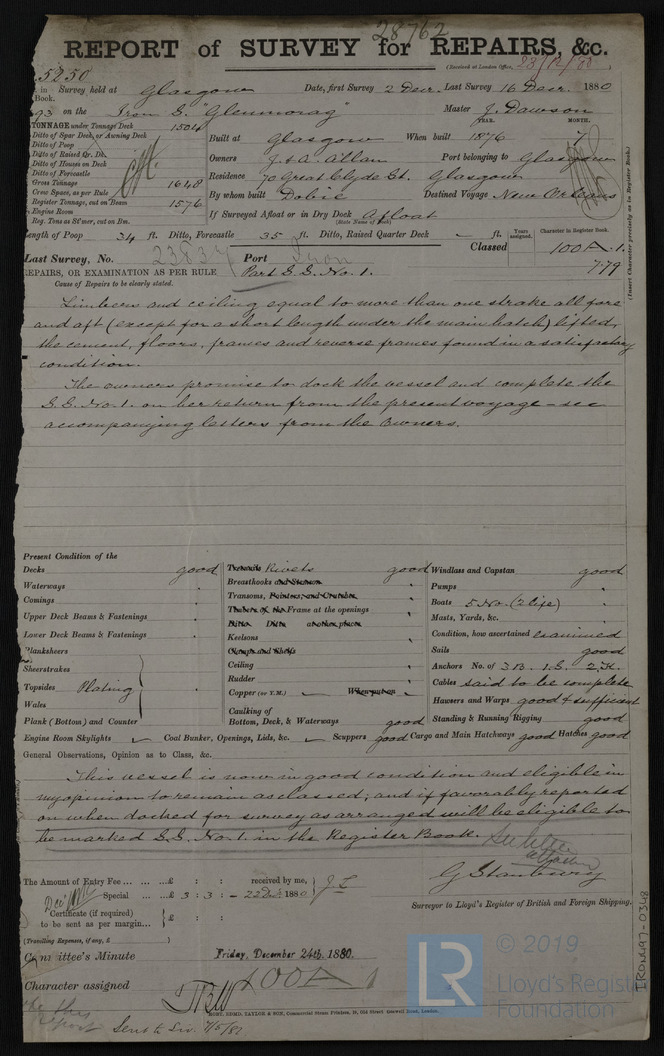 28762
REPORT of SURVEY for REPAIRS, &c.
(Received at London Office, 23/12/80
5250
in Survey held at Glasgow Date, first Survey 2 Decr. Last Survey 16 Decr. 1880
Book.
93 on the Iron S. "Glenmorag" Master J. Dawson
TONNAGE under Tonnage Deck 1504
Ditto of Spar Deck, or Awning Deck
Ditto of Poop
Ditto of Raised Qr. Dk.
Ditto of Houses on Deck
Ditto of Forecastle
Gross Tonnage 1648
Crew Space, as per Rule
Register Tonnage, cut on Beam 1576
Engine Room
Reg. Tons as St'mer, cut on Bm.
YEAR. MONTH.
Built at Glasgow When built 1876 7
Owners J. & A. Allan Port belonging to Glasgow
Residence 70 Great Clyde St. Glasgow
By whom built Dobie Destined Voyage New Orleans
If Surveyed Afloat or in Dry Dock Afloat
(State Name of Dock)
Length of Poop 34 ft. Ditto, Forecastle 35 ft. Ditto, Raised Quarter Deck - ft.
Years assigned.
Character in Register Book.
Classed 100 A. 1.
7.79
(Insert Character precisely as in Register Book.)
Last Survey, No. 23837 Port Iron
REPAIRS, OR EXAMINATION AS PER RULE Part S.S. No. 1.
Cause of Repairs to be clearly stated.
Limbers and ceiling equal to more than one strake all fore
and aft (except for a short length under the main hatch) lifted,
the cement, floors, frames and reverse frames found in a satisfactory
condition.
The owners promise to dock the vessel and complete the
S.S. No. 1. on her return from the present voyage - see
accompanying letters from the owners.
Present Condition of the
Decks good
Waterways "
Comings "
Upper Deck Beams & Fastenings "
Lower Deck Beams & Fastenings "
Planksheers
Sheerstrakes
Topsides Plating "
Wales
Plank (Bottom) and Counter
Treenails Rivets good
Breasthooks and Stemson "
Transoms, Pointers, and Crutches "
Timbers of the Frame at the openings "
Ditto Ditto at other places
Keelsons "
Clamps and Shelfs
Ceiling "
Rudder "
Copper (or Y.M.) When put on
Caulking of
Bottom, Deck, & Waterways good
Windlass and Capstan good
Pumps "
Boats 5 No. (2 life) "
Masts, Yards, &c. "
Condition, how ascertained examined
Sails good
Anchors No. of 3 B. 1 S. 2 K.
Cables said to be complete
Hawsers and Warps good & sufficient
Standing & Running Rigging good
Engine Room Skylights Coal Bunker, Openings, Lids, &c. Scuppers good Cargo and Main Hatchways good Hatches good
General Observations, Opinion as to Class, &c.
This vessel is now in good condition and eligible in
my opinion to remain as classed; and if favorably reported
on when docked for survey as arranged will be eligible to
be marked S.S. No. 1. in the Register Book.
G Stanbury
Surveyor to Lloyd's Register of British and Foreign Shipping.
The Amount of Entry Fee ... £ : : received by me,
Special ... £ 3 : 3 : - 22 Dec 1880
Certificate (if required) £ : :
to be sent as per margin...
(Travelling Expenses, if any, £ )
Committee's Minute Friday, December 24th, 1880.
Character assigned 100 A 1
Sent to Liv. 7/5/82
MOST. EDMD. TAYLOR & SON, Commercial Steam Printers,
IRON197-0348
LR
© 2019
Lloyd's Register
Foundation